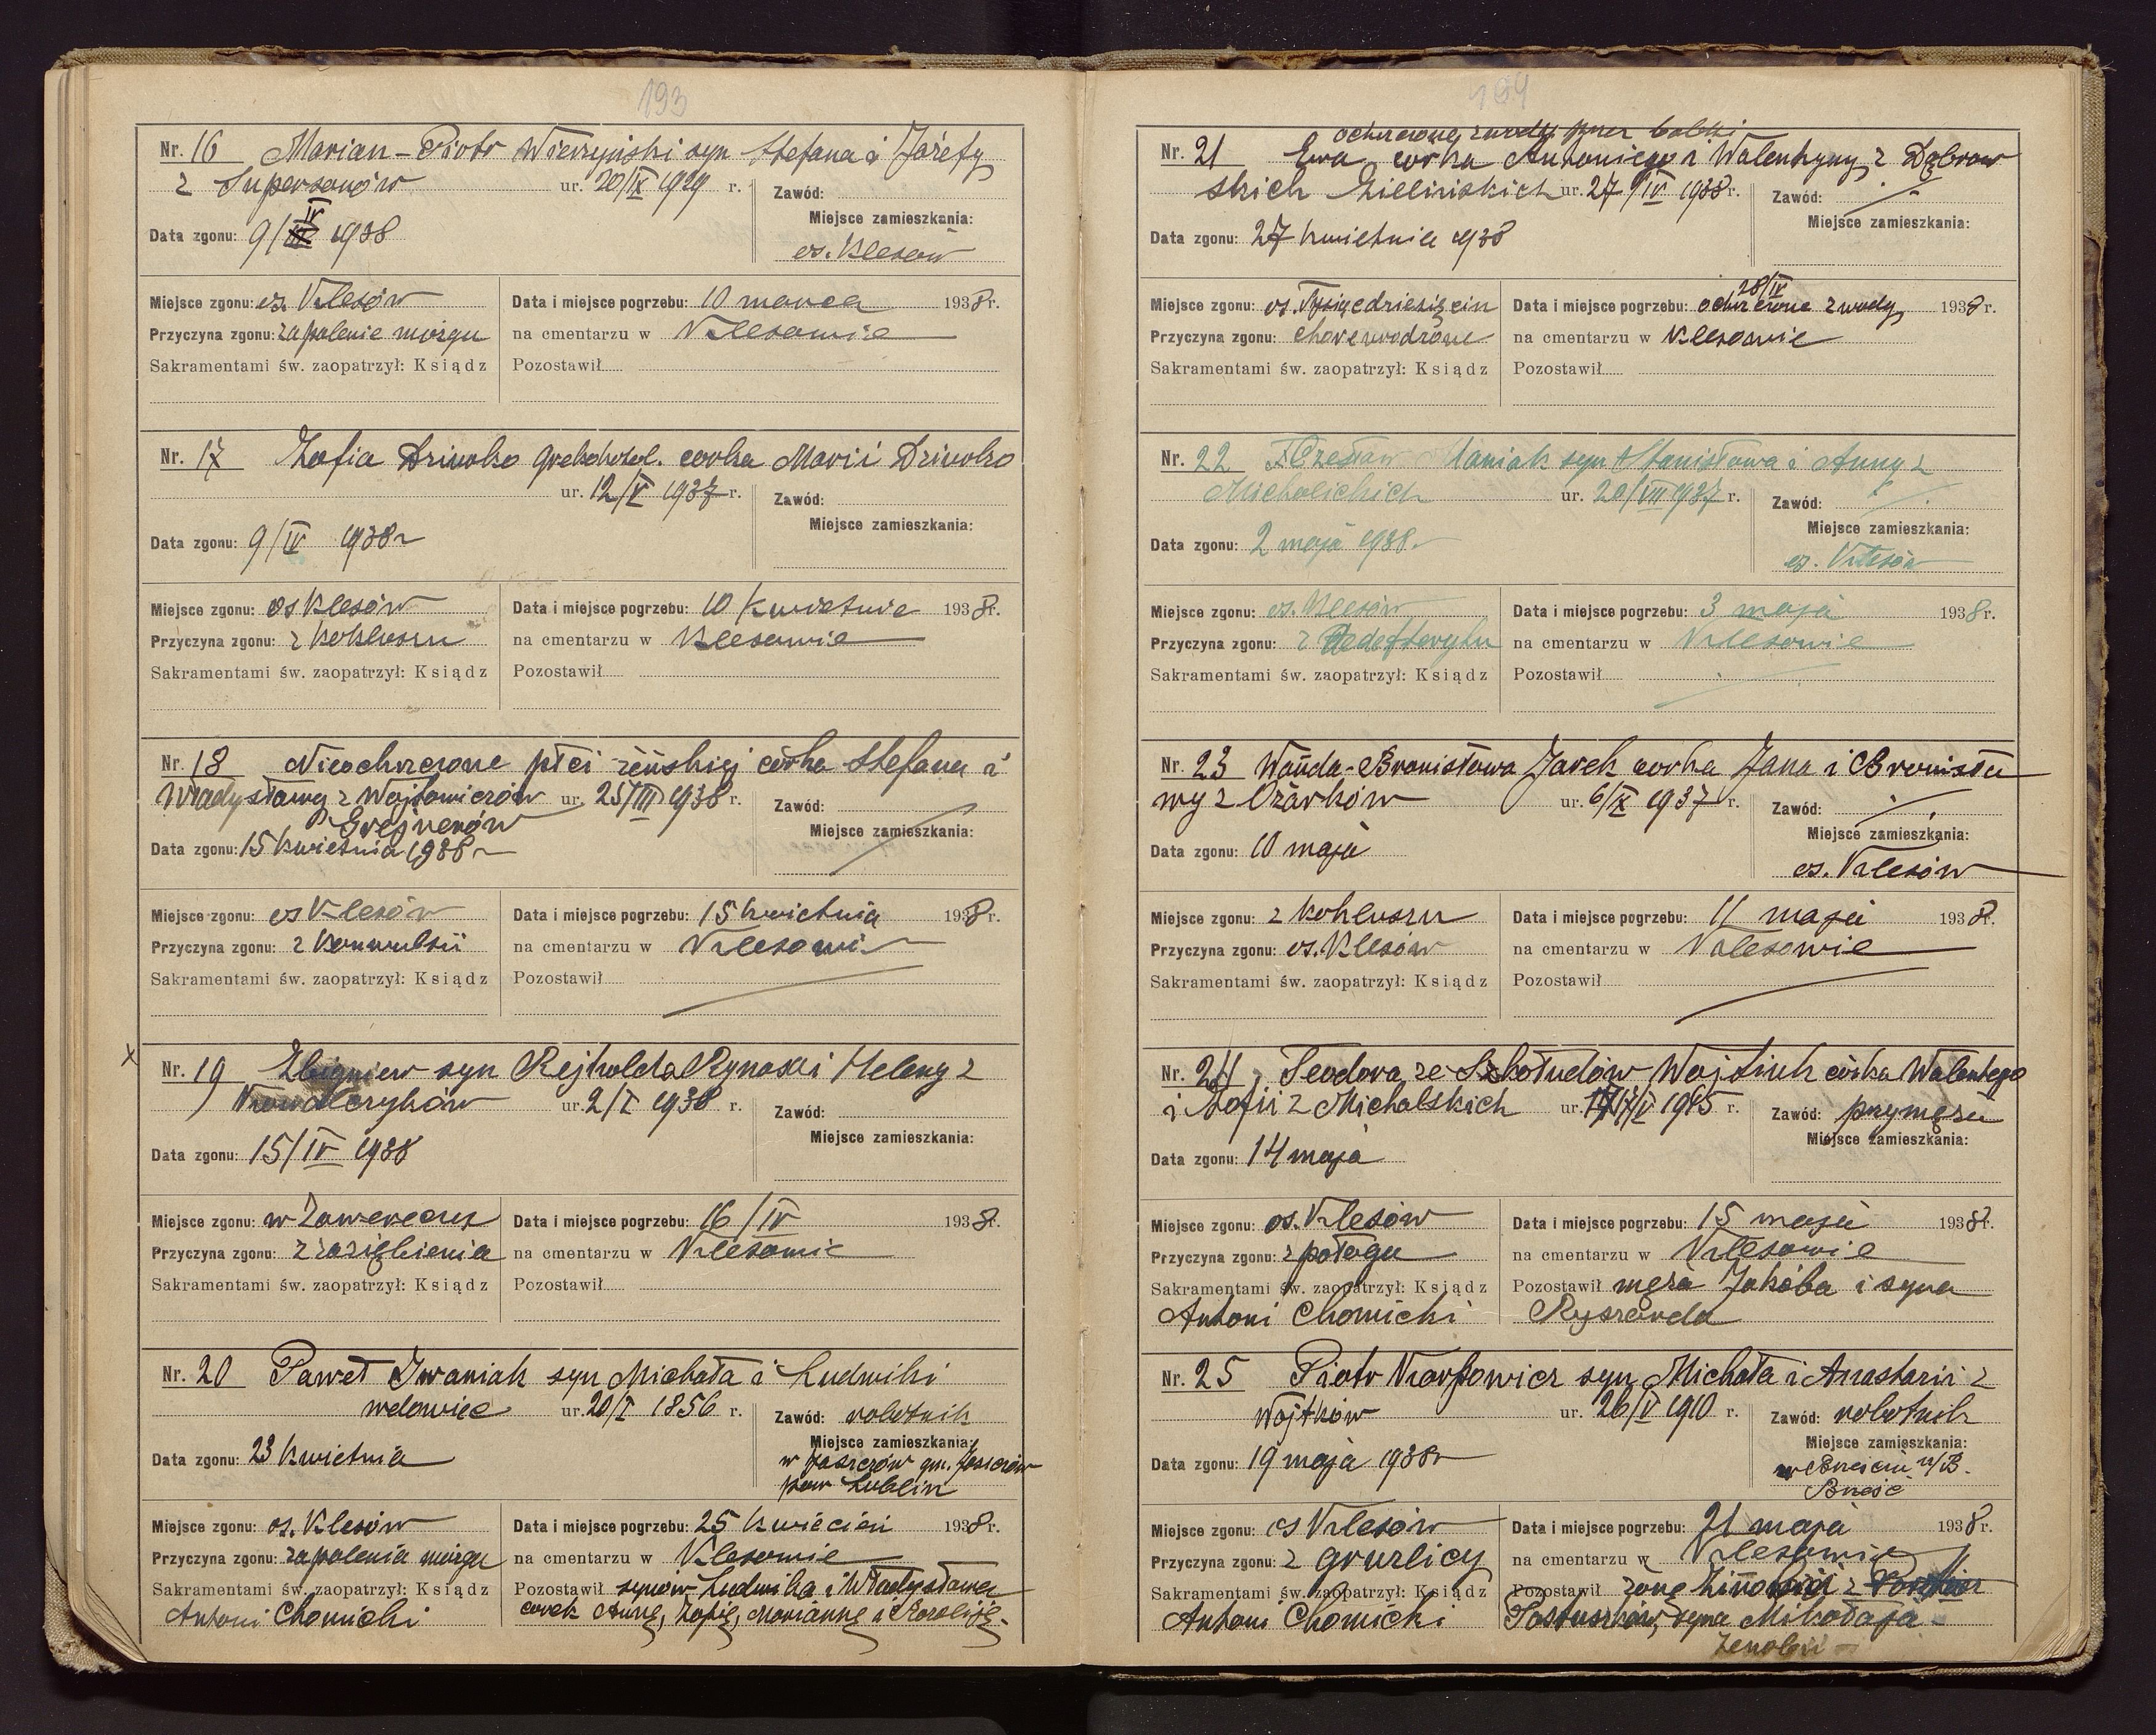 193
Nr. 16 Marian-Piotr Wierzyński syn Stefana i Józefy
z Supersonów ur. 20/IX 1929 r. Zawód:
Miejsce zamieszkania:
Data zgonu: 9/IV 1938
os. Klesów
Miejsce zgonu: os. Klesów Data i miejsce pogrzebu: 10 marca 1938 r.
Przyczyna zgonu: zapalenie mózgu na cmentarzu w Klesowie
Sakramentami św. zaopatrzył: Ksiądz Pozostawił
Nr. 17 Zofia Dziwolzo grekokatol. corka Marii Dziwolzo
ur. 12/V 1937 r. Zawód:
Miejsce zamieszkania:
Data zgonu: 9/IV 1938 r
Miejsce zgonu: os Klesów Data i miejsce pogrzebu: 10 kwietnia 1938 r.
Przyczyna zgonu: z kokluszu na cmentarzu w Klesowie
Sakramentami św. zaopatrzył: Ksiądz Pozostawił
Nr. 18 Nieochrzczone płci żeńskiej córka Stefana i
Władysławy z Wojtowiczów ur. 25/III 1938 r. Zawód:
Grejnerów
Miejsce zamieszkania:
Data zgonu: 15 kwietnia 1938 r
Miejsce zgonu: os Klesów Data i miejsce pogrzebu: 15 kwietnia 1938 r.
Przyczyna zgonu: z konwulsii na cmentarzu w Klesowie
Sakramentami św. zaopatrzył: Ksiądz Pozostawił
x
Nr. 19 Zbigniew syn Rejholda Rynas i Heleny z
ur. 2/I 1938 r. Zawód:
Miejsce zamieszkania:
Data zgonu: 15/IV 1938
Miejsce zgonu: w Data i miejsce pogrzebu: 16/IV 1938 r.
Przyczyna zgonu: z zaziębienia na cmentarzu w Klesowie
Sakramentami św. zaopatrzył: Ksiądz Pozostawił
Nr. 20 Paweł Iwaniak syn Michała i Ludwiki
wdowiec ur. 20/I 1856 r. Zawód: robotnik
Miejsce zamieszkania:
Data zgonu: 23 kwietnia w Jaszczów gm. Jaszczów
pow Lublin
Miejsce zgonu: os. Klesów Data i miejsce pogrzebu: 25 kwiecień 1938 r.
Przyczyna zgonu: zapalenia mózgu na cmentarzu w Klesowie
Sakramentami św. zaopatrzył: Ksiądz Pozostawił synów Ludwika i Władysława
Antoni Chomicki corek Annę, Zofię, Mariannę i Rozalię
ochrzczone z wody przez babki
Nr. 21 Ewa corka Antoniego i Walentyny z Dąbrow
skich Zielińskich ur. 27/IV 1938 r. Zawód:
Miejsce zamieszkania:
Data zgonu: 27 kwietnia 1938
28/IV
Miejsce zgonu: os. Data i miejsce pogrzebu: ochrzczone z wody 1938 r.
Przyczyna zgonu: na cmentarzu w Klesowie
Sakramentami św. zaopatrzył: Ksiądz Pozostawił
Nr. 22 Czesław Maniak syn Stanisława i Anny z
Michalickich ur. 20/VIII 1937 r. Zawód:
Miejsce zamieszkania:
Data zgonu: 2 maja 1938 r
os. Klesów
Miejsce zgonu: os. Klesów Data i miejsce pogrzebu: 3 maja 1938 r.
Przyczyna zgonu: z na cmentarzu w Klesowie
Sakramentami św. zaopatrzył: Ksiądz Pozostawił
Nr. 23 Wanda-Bronisława Jarek corka Jana i Bronisła
wy z Ożarków ur. 6/IX 1937 r. Zawód:
Miejsce zamieszkania:
Data zgonu: 10 maja
os. Klesów
Miejsce zgonu: z kokluszu Data i miejsce pogrzebu: 11 maja 1938 r.
Przyczyna zgonu: os. Klesów na cmentarzu w Klesowie
Sakramentami św. zaopatrzył: Ksiądz Pozostawił
Nr. 24 Teodora ze Szkołudów Wojtiuk córka Walentego
i Zofii z Michalskich ur. 1915 r. Zawód: przy mężu
Miejsce zamieszkania:
Data zgonu: 14 maja
Miejsce zgonu: os. Klesów Data i miejsce pogrzebu: 15 maja 1938 r.
Przyczyna zgonu: z połogu na cmentarzu w Klesowie
Sakramentami św. zaopatrzył: Ksiądz Pozostawił męża Jakóba i syna
Antoni Chomicki Ryszarda
Nr. 25 Piotr Karpowicz syn Michała i Anastazii z
Wojtków ur. 26/V 1910 r. Zawód: robotnik
Miejsce zamieszkania:
Data zgonu: 19 maja 1938 r w Brześciu n/B.
Brześć
Miejsce zgonu: os Klesów Data i miejsce pogrzebu: 21 maja 1938 r.
Przyczyna zgonu: z gruźlicy na cmentarzu w Klesowie
Sakramentami św. zaopatrzył: Ksiądz Pozostawił żonę z
Antoni Chomicki Pastuszków, syna Mikołaja